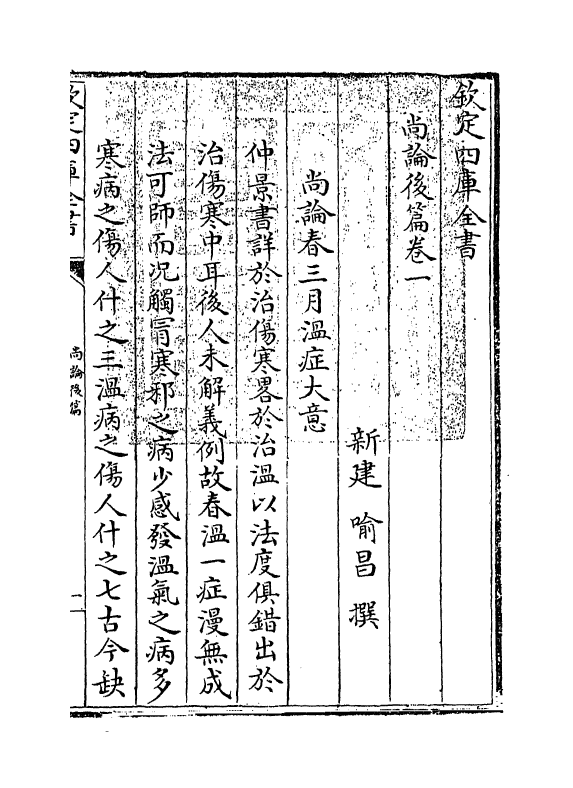 欽定四庫全書
尚論後篇卷一
新建　喻昌　撰
尚論春三月溫症大意
仲景書詳於治傷寒畧於治溫以法度俱錯出於
治傷寒中耳後人未解義例故春溫一症漫無成
法可師而況觸冒寒邪之病少感發溫氣之病多
寒病之傷人什之三溫病之傷人什之七古今缺
欽定四庫全書
尚論後篇
一